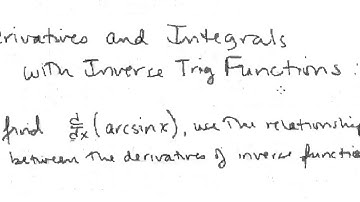 erivatives and Integrals
with Inverse Trig Functions:
find d/dx (arcsin x), use the relationship
between the derivatives of inverse function